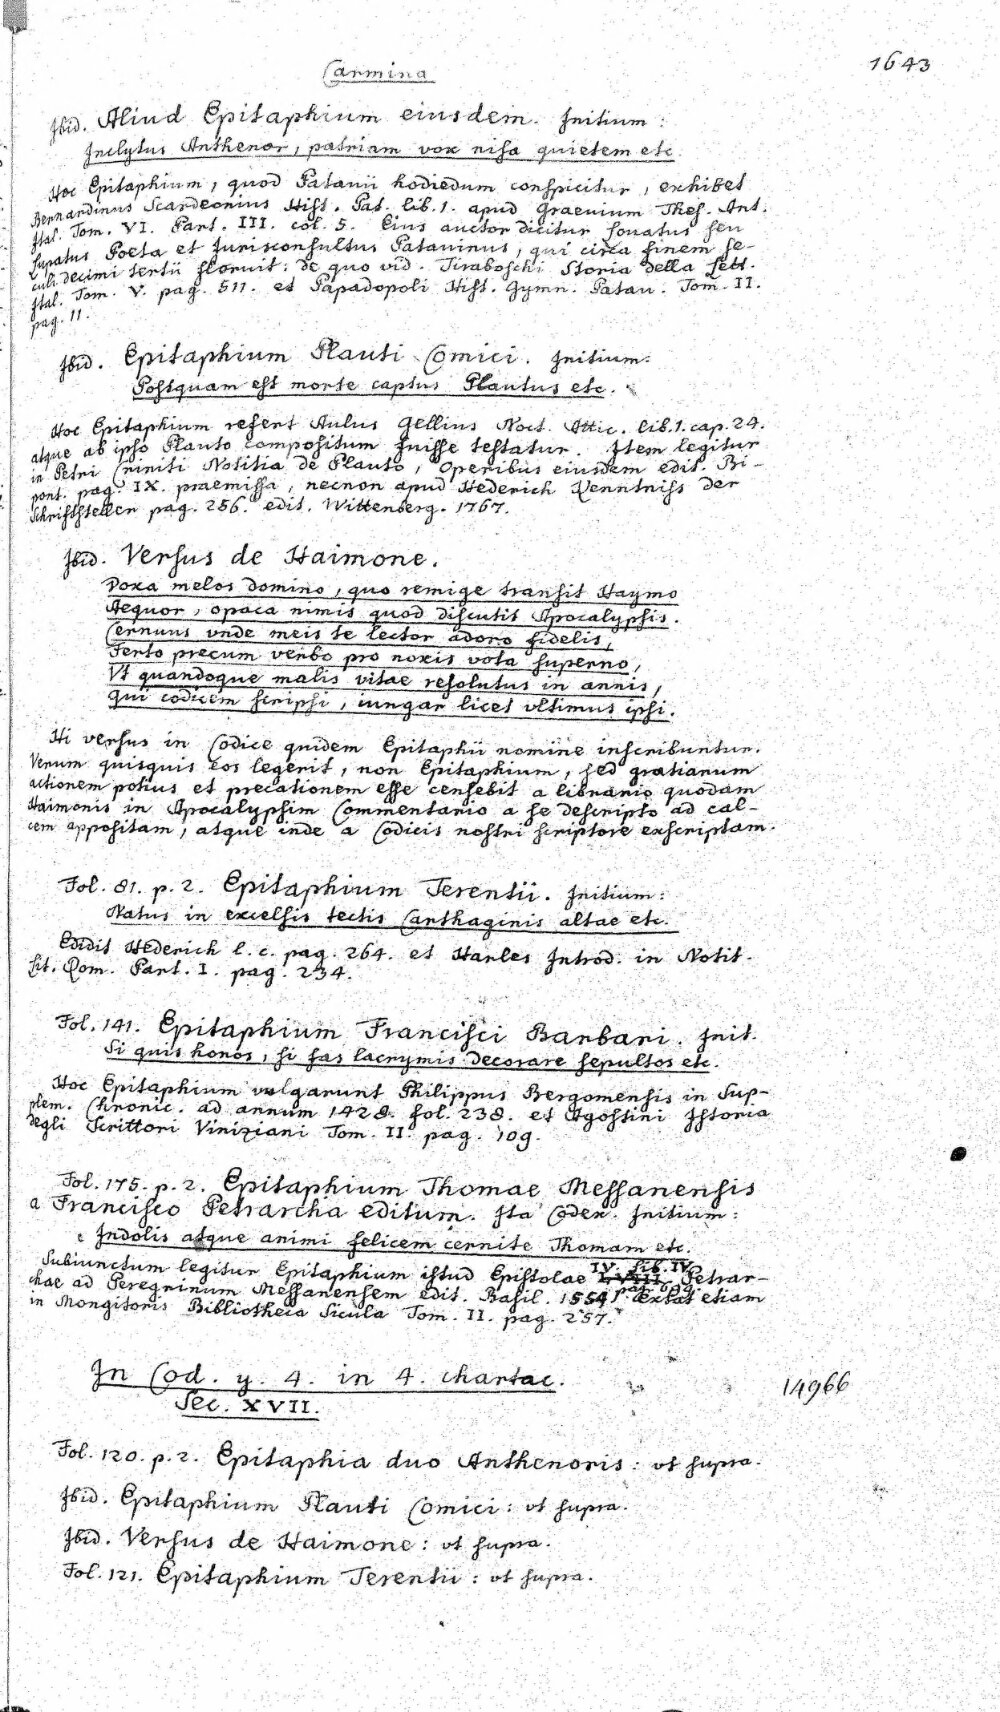 Carmina
1643
Ibid. Aliud Epitaphium eiusdem. Initium:
Inclytus Anthenor, patriam vox nisa quietem etc.
Hoc Epitaphium, quod Patavii hodiedum conspicitur, exhibet
Bernardinus Scardeonius Hist. Pat. lib. 1. apud Graevium Thes. Ant.
Ital. Tom. VI. Part. III. col. 5. Eius auctor dicitur Lovatus seu
Lupatus Poeta et Jurisconsultus Patavinus, qui circa finem Se-
culi decimi tertii floruit: de quo vid. Tiraboschi Storia della Lett.
Ital. Tom. V. pag. 511. et Papadopoli Hist. Gymn. Patav. Tom. II.
pag. 11.
Ibid. Epitaphium Plauti Comici. Initium:
Postquam est morte captus Plautus etc.
Hoc Epitaphium refert Aulus Gellius Noct. Attic. lib. 1. cap. 24.
atque ab ipso Plauto compositum fuisse testatur. Item legitur
in Petri Criniti Notitia de Plauto, Operibus eiusdem edit. Bi-
pont. pag. IX. praemissa, necnon apud Hederich Kenntniss der
Schriftsteller pag. 256. edit. Wittenberg. 1767.
Ibid. Versus de Haimone.
Doxa melos domino, quo remige transit Haymo
Aequor, opaca nimis quod discutit Apocalypsis.
Cernuus vnde meis te lector adoro fidelis,
Ferto precum verbo pro noxis vota superno,
Vt quandoque malis vitae resolutus in annis,
Qui codicem scripsi, iungar licet vltimus ipsi.
Hi versus in Codice quidem Epitaphii nomine inscribuntur.
Verum quisquis eos legerit, non Epitaphium, sed gratiarum
actionem potius et precationem esse censebit a librario quodam
Haimonis in Apocalypsim Commentario a se descripto ad cal-
cem appositam, atque inde a Codicis nostri scriptore exscriptam.
Fol. 81. p. 2. Epitaphium Terentii. Initium:
Natus in excelsis tectis Carthaginis altae etc.
Edidit Hederich l. c. pag. 264. et Harles Introd. in Notit.
Lit. Rom. Part. I. pag. 234.
Fol. 141. Epitaphium Francisci Barbari. Init.
Si quis honos, si fas lacrymis decorare sepultos etc.
Hoc Epitaphium vulgarunt Philippus Bergomensis in Sup-
plem. Chronic. ad annum 1428. fol. 238. et Agostini Istoria
degli Scrittori Viniziani Tom. II. pag. 109.
Fol. 175. p. 2. Epitaphium Thomae Messanensis
a Francisco Petrarcha editum. Ita Codex. Initium:
Indolis atque animi felicem cernite Thomam etc.
Subiunctum legitur Epitaphium istud Epistolae IV. Lib. IV. Petrar-
chae ad Peregrinum Messanensem edit. Basil. 1554. Extat etiam
in Mongitoris Bibliotheca Sicula Tom. II. pag. 257.
In Cod. y. 4. in 4. chartac.
14966
Sec. XVII.
Fol. 120. p. 2. Epitaphia duo Anthenoris: vt supra.
Ibid. Epitaphium Plauti Comici: vt supra.
Ibid. Versus de Haimone: vt supra.
Fol. 121. Epitaphium Terentii: vt supra.